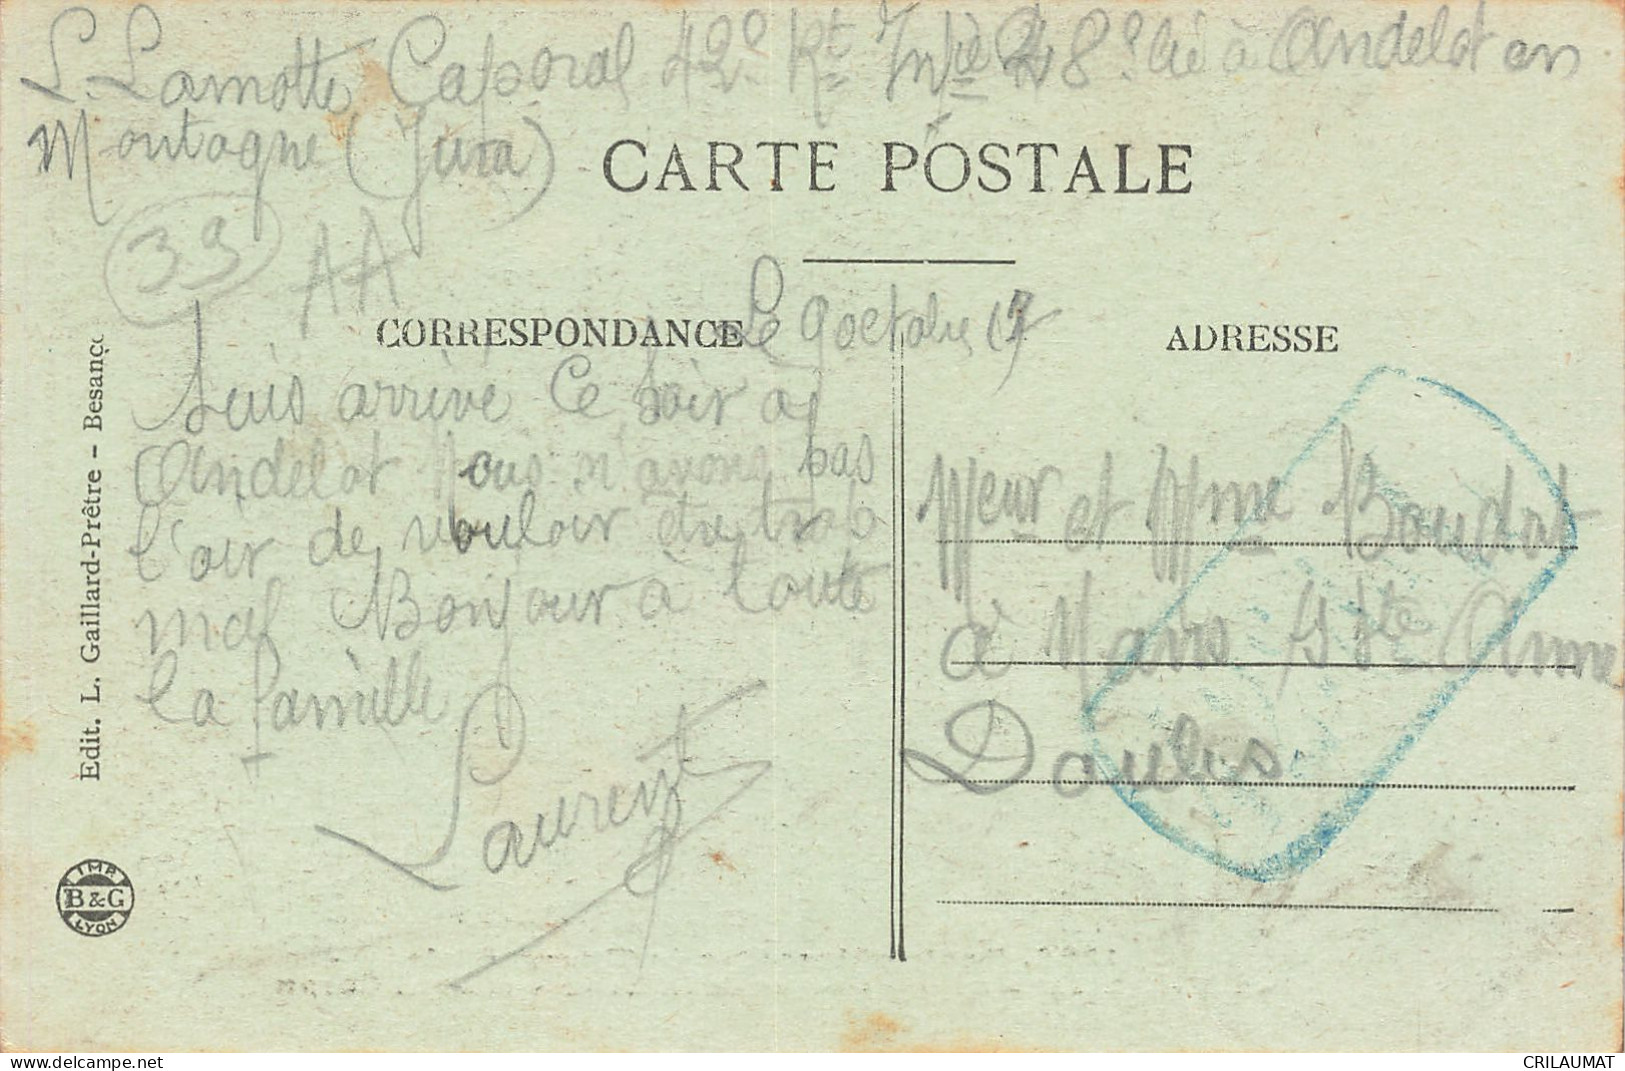 L. Lamotte Caporal 42e Rt Infie 28e Cie à Andelot en
Montagne (Jura)
CARTE POSTALE
39
AA
CORRESPONDANCE
Le 9 octobre 17
ADRESSE
Suis arrivé ce soir à
Andelot Nous n'avons pas
l'air de vouloir être trop
mal Bonjour à toute
la famille
Laurent
Meur et Mme Boudot
à Vaire Ste Anne
Doubs
Edit. L. Gaillard-Prêtre - Besanç
IMP.
B & G
LYON
delcampe.net
CRILAUMAT